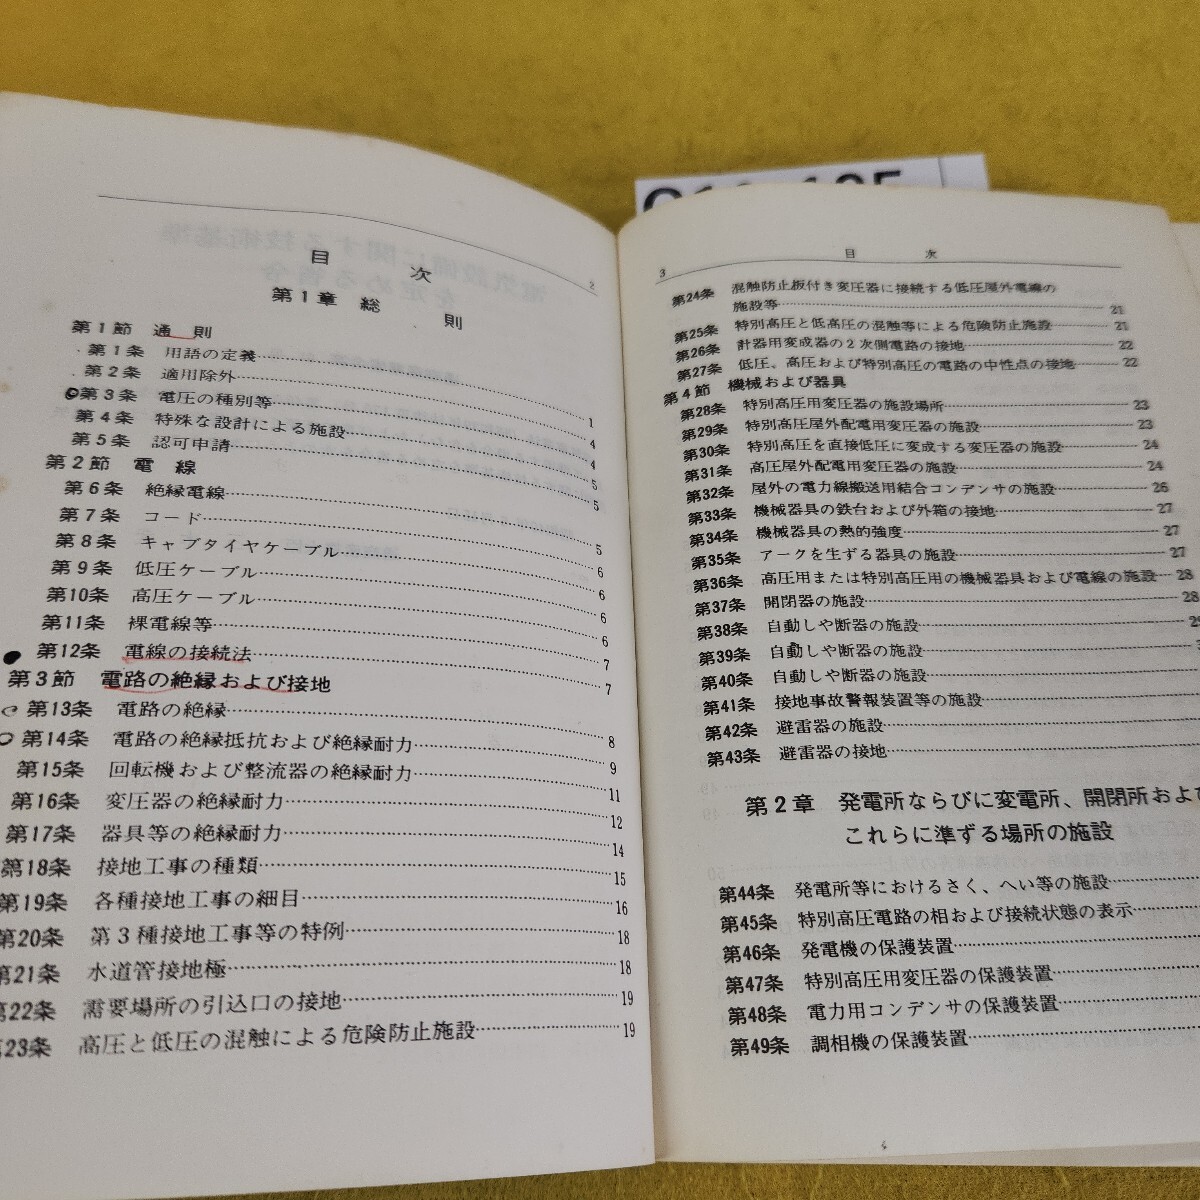 目　次
2
第1章 総　則
第1節 通　則
第1条 用語の定義 1
第2条 適用除外 4
第3条 電圧の種別等 4
第4条 特殊な設計による施設 5
第5条 認可申請 5
第2節 電　線
第6条 絶縁電線 5
第7条 コード 6
第8条 キャブタイヤケーブル 6
第9条 低圧ケーブル 6
第10条 高圧ケーブル 6
第11条 裸電線等 7
第12条 電線の接続法 7
第3節 電路の絶縁および接地
第13条 電路の絶縁 8
第14条 電路の絶縁抵抗および絶縁耐力 9
第15条 回転機および整流器の絶縁耐力 11
第16条 変圧器の絶縁耐力 12
第17条 器具等の絶縁耐力 14
第18条 接地工事の種類 15
第19条 各種接地工事の細目 16
第20条 第3種接地工事等の特例 18
第21条 水道管接地極 18
第22条 需要場所の引込口の接地 19
第23条 高圧と低圧の混触による危険防止施設 19
3
目　次
第24条 混触防止板付き変圧器に接続する低圧屋外電線の
施設等 21
第25条 特別高圧と低高圧の混触等による危険防止施設 21
第26条 計器用変成器の2次側電路の接地 22
第27条 低圧、高圧および特別高圧の電路の中性点の接地 22
第4節 機械および器具
第28条 特別高圧用変圧器の施設場所 23
第29条 特別高圧屋外配電用変圧器の施設 23
第30条 特別高圧を直接低圧に変成する変圧器の施設 24
第31条 高圧屋外配電用変圧器の施設 24
第32条 屋外の電力線搬送用結合コンデンサの施設 26
第33条 機械器具の鉄台および外箱の接地 27
第34条 機械器具の熱的強度 27
第35条 アークを生ずる器具の施設 27
第36条 高圧用または特別高圧用の機械器具および電線の施設 28
第37条 開閉器の施設 28
第38条 自動しや断器の施設
第39条 自動しや断器の施設
第40条 自動しや断器の施設
第41条 接地事故警報装置等の施設
第42条 避雷器の施設
第43条 避雷器の接地
第2章 発電所ならびに変電所、開閉所およ
これらに準ずる場所の施設
第44条 発電所等におけるさく、へい等の施設
第45条 特別高圧電路の相および接続状態の表示
第46条 発電機の保護装置
第47条 特別高圧用変圧器の保護装置
第48条 電力用コンデンサの保護装置
第49条 調相機の保護装置